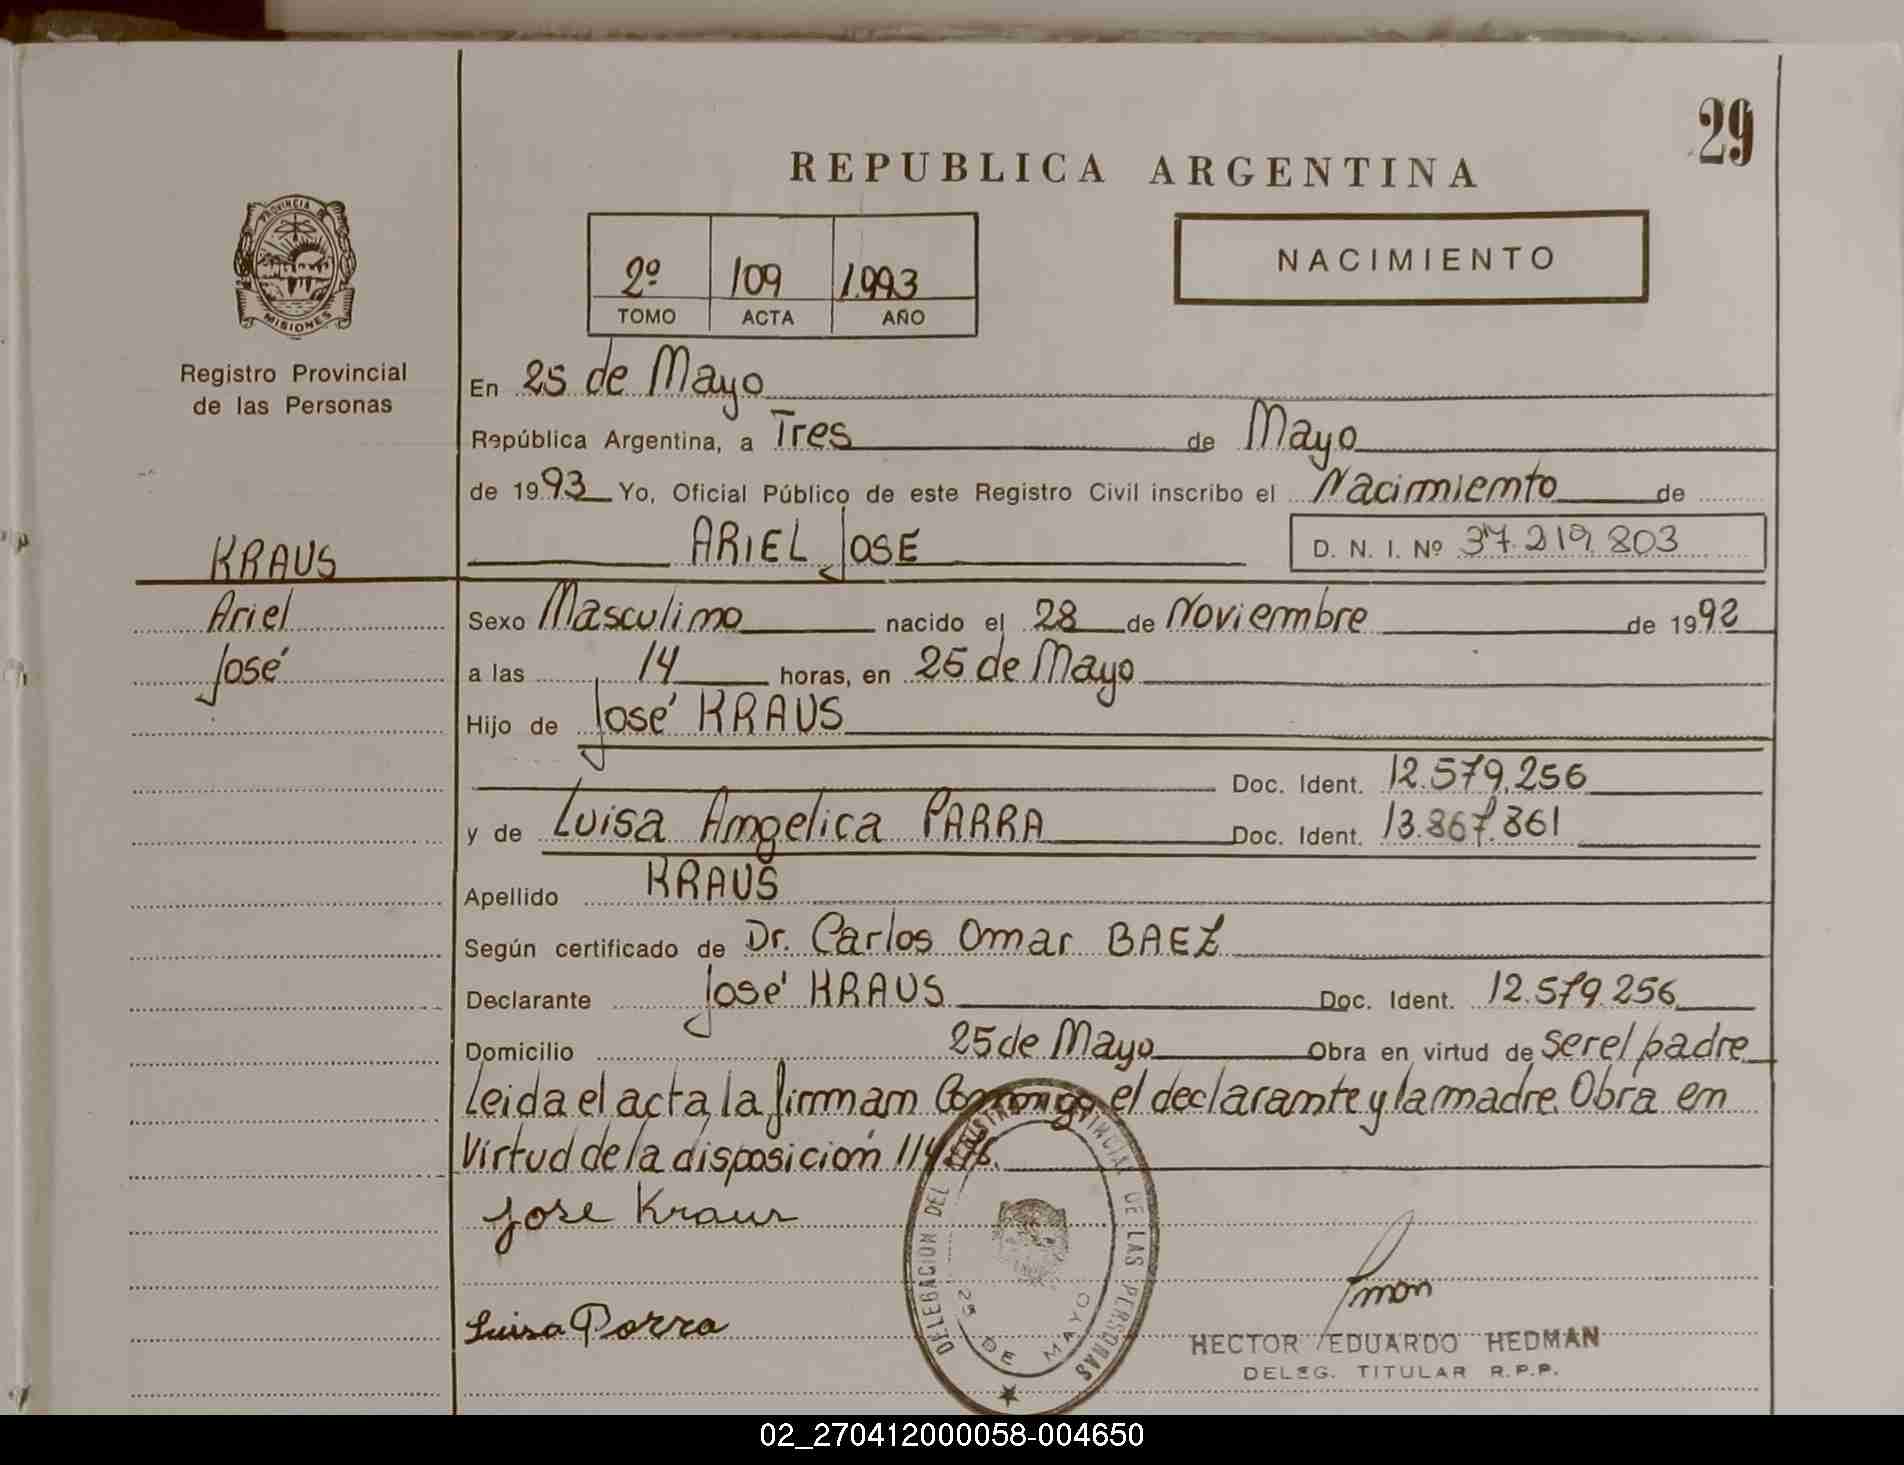 29
REPUBLICA ARGENTINA
PROVINCIA DE
MISIONES
Registro Provincial
de las Personas
2º 109 1.993
TOMO ACTA AÑO
NACIMIENTO
En 25 de Mayo
República Argentina, a Tres de Mayo
de 1993 Yo, Oficial Público de este Registro Civil inscribo el Nacimiento de
ARIEL JOSE D. N. I. Nº 37.219.803
KRAUS
Ariel
José
Sexo Masculino nacido el 28 de Noviembre de 1992
a las 14 horas, en 25 de Mayo
Hijo de José KRAUS
Doc. Ident. 12.579.256
y de Luisa Angelica PARRA Doc. Ident. 13.867.861
Apellido KRAUS
Según certificado de Dr. Carlos Omar BAEZ
Declarante José KRAUS Doc. Ident. 12.579.256
Domicilio 25 de Mayo Obra en virtud de ser el padre
Leida el acta, la firman Conmigo el declarante y la madre. Obra en
Virtud de la disposición
Jose Kraus
Luisa Parra
DELEGACION DEL REGISTRO PROVINCIAL DE LAS PERSONAS
25 DE MAYO
HECTOR EDUARDO HEDMAN
DELEG. TITULAR R.P.P.
02_270412000058-004650